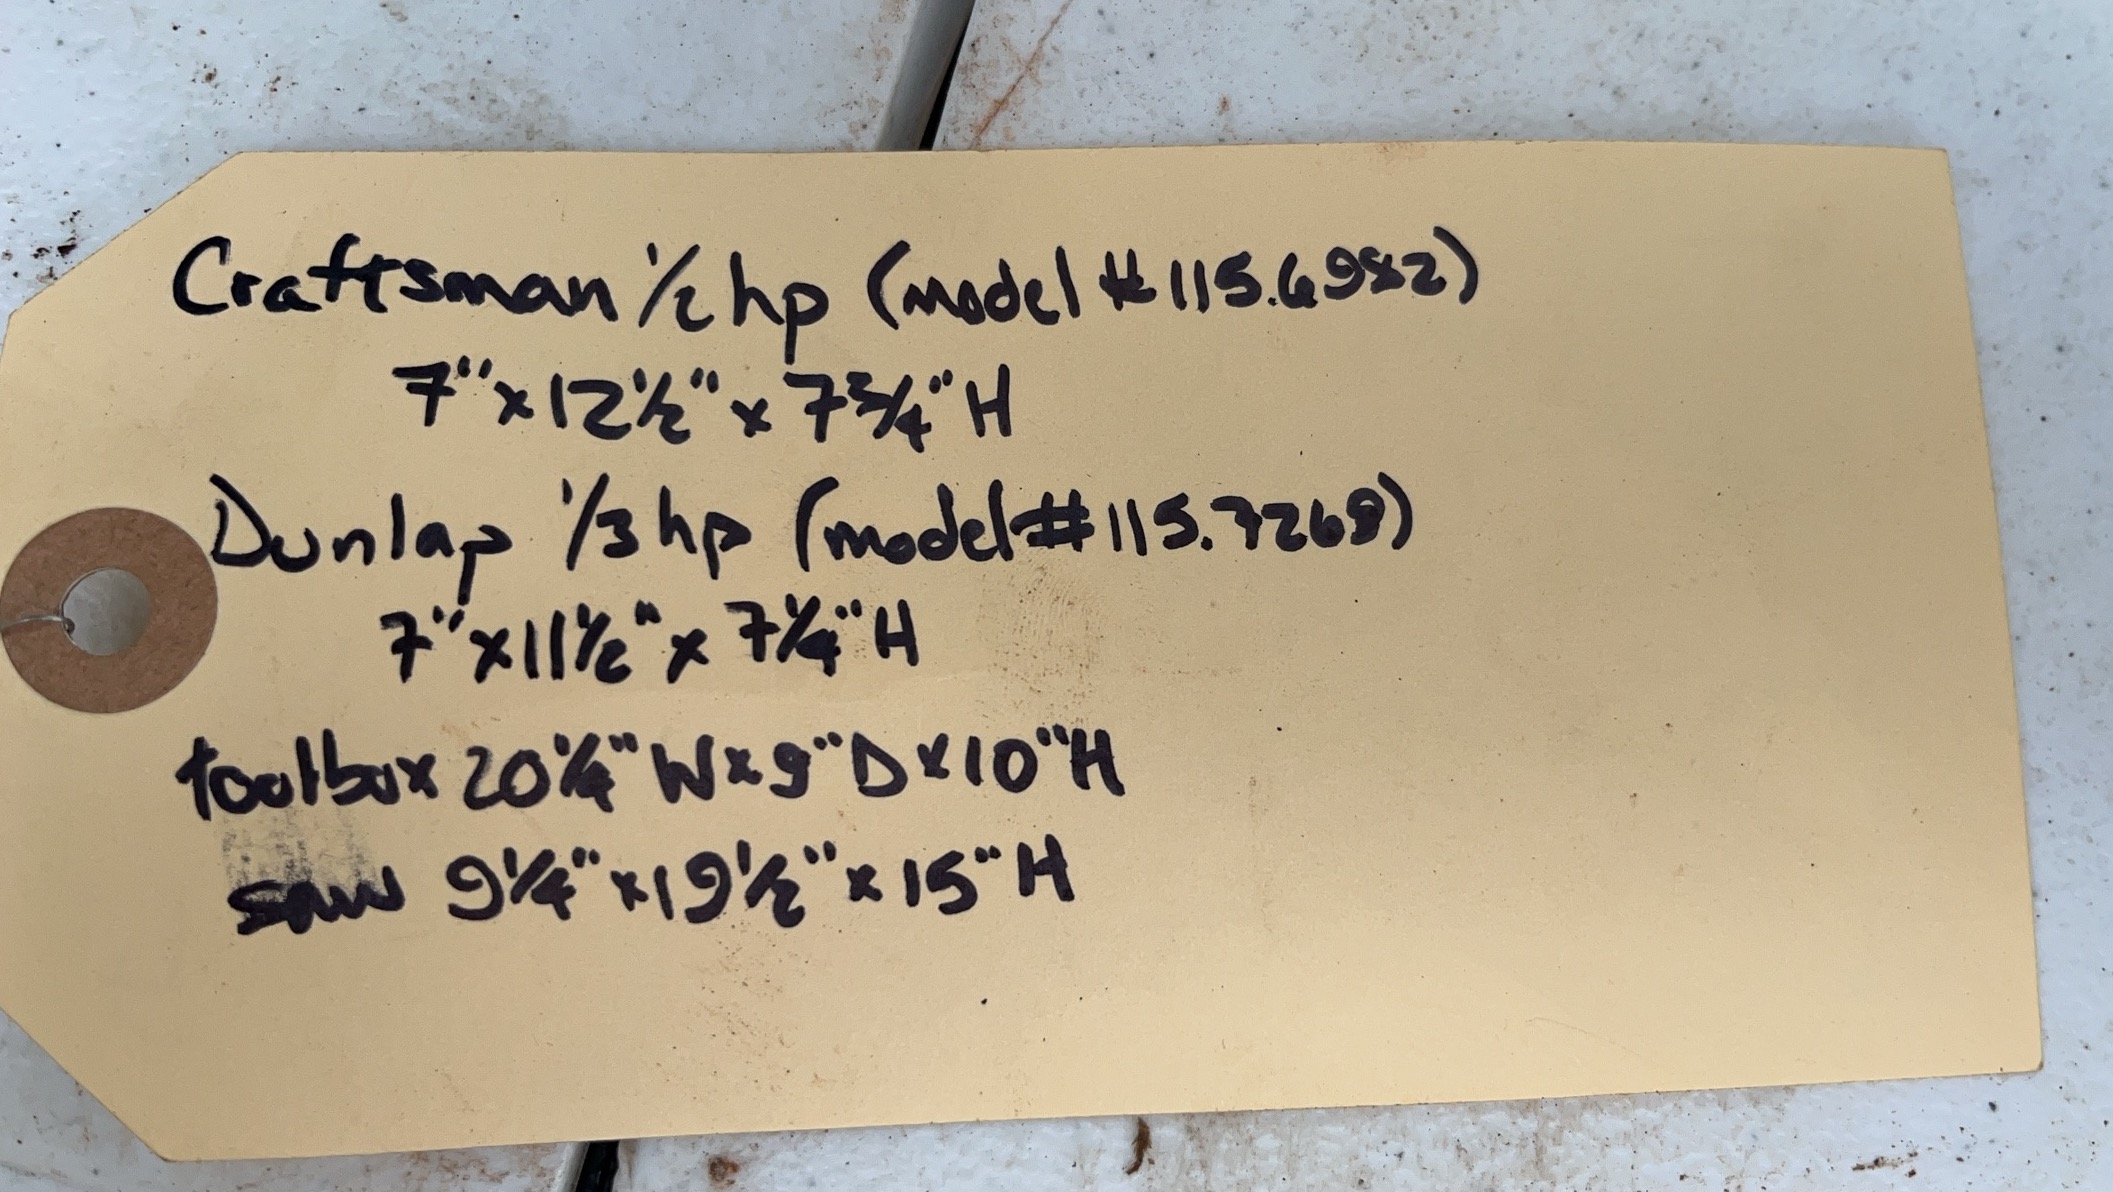 Craftsman 1/2 hp (model #115.6982)
7" x 12 1/2" x 7 3/4" H
Dunlap 1/3 hp (model #115.7268)
7" x 11 1/2" x 7 1/4" H
toolbox 20 1/4" W x 9" D x 10" H
saw 9 1/4" x 19 1/2" x 15" H